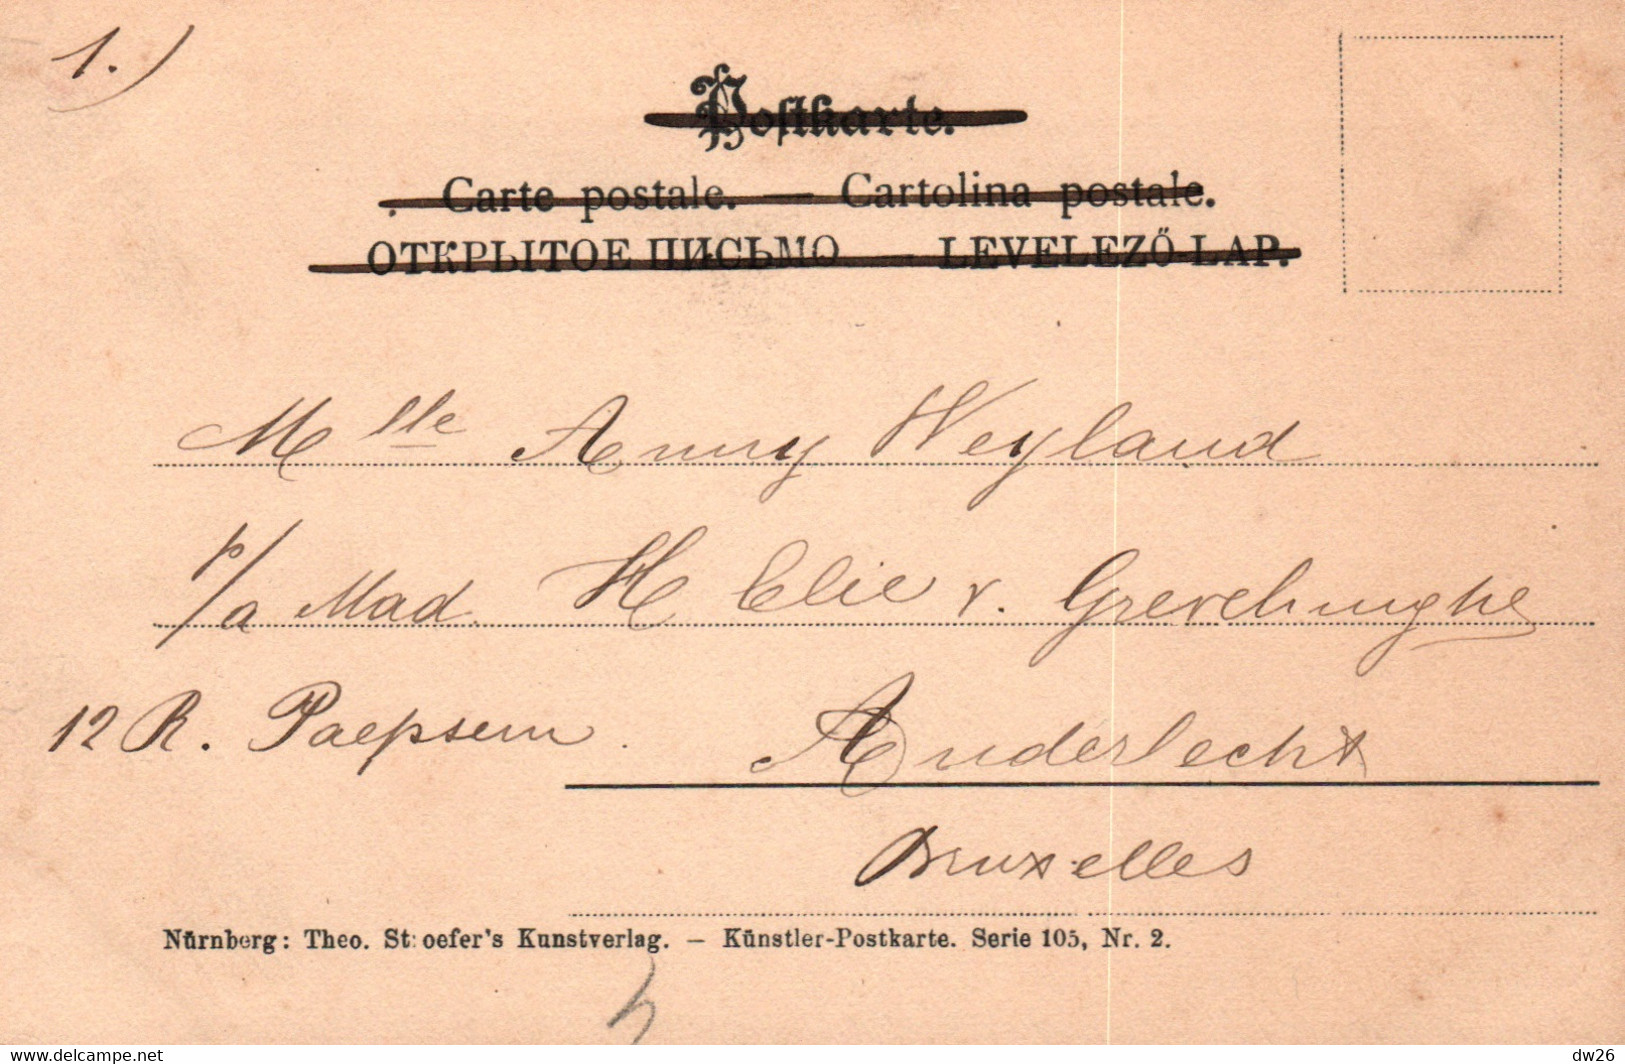 1.)
Postkarte.
Carte postale. — Cartolina postale.
ОТКРЫТОЕ ПИСЬМО — LEVELEZŐ-LAP.
Mlle Anny Weyland
p/a Mad. H Elie v. Grevelinghe
12 R. Paepsem
Anderlecht
Bruxelles
Nürnberg: Theo. Stroefer's Kunstverlag. — Künstler-Postkarte. Serie 105, Nr. 2.
https://www.delcampe.net
dw26